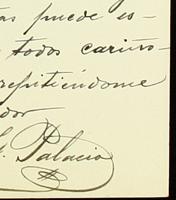 tas puede es-
todos cariño-
repitiéndome
dor
G. Palacio